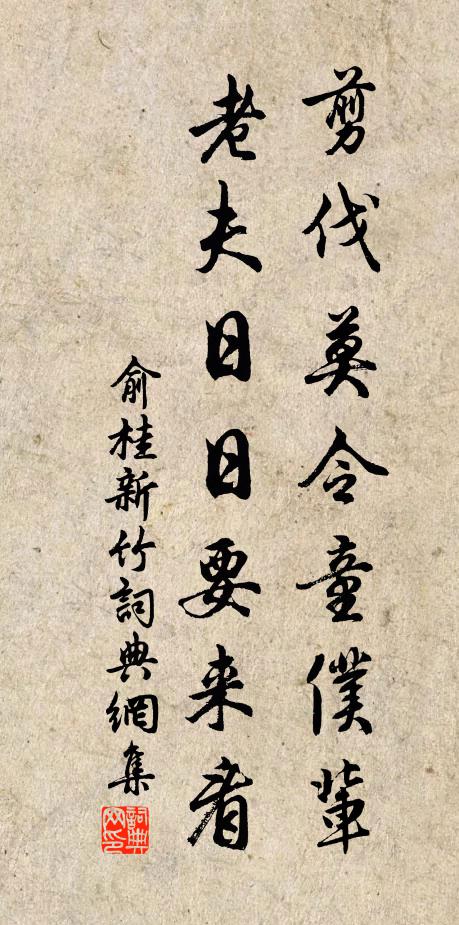 剪伐莫令童僕輩
老夫日日要来看
俞桂新竹詞典網集
詞典网印